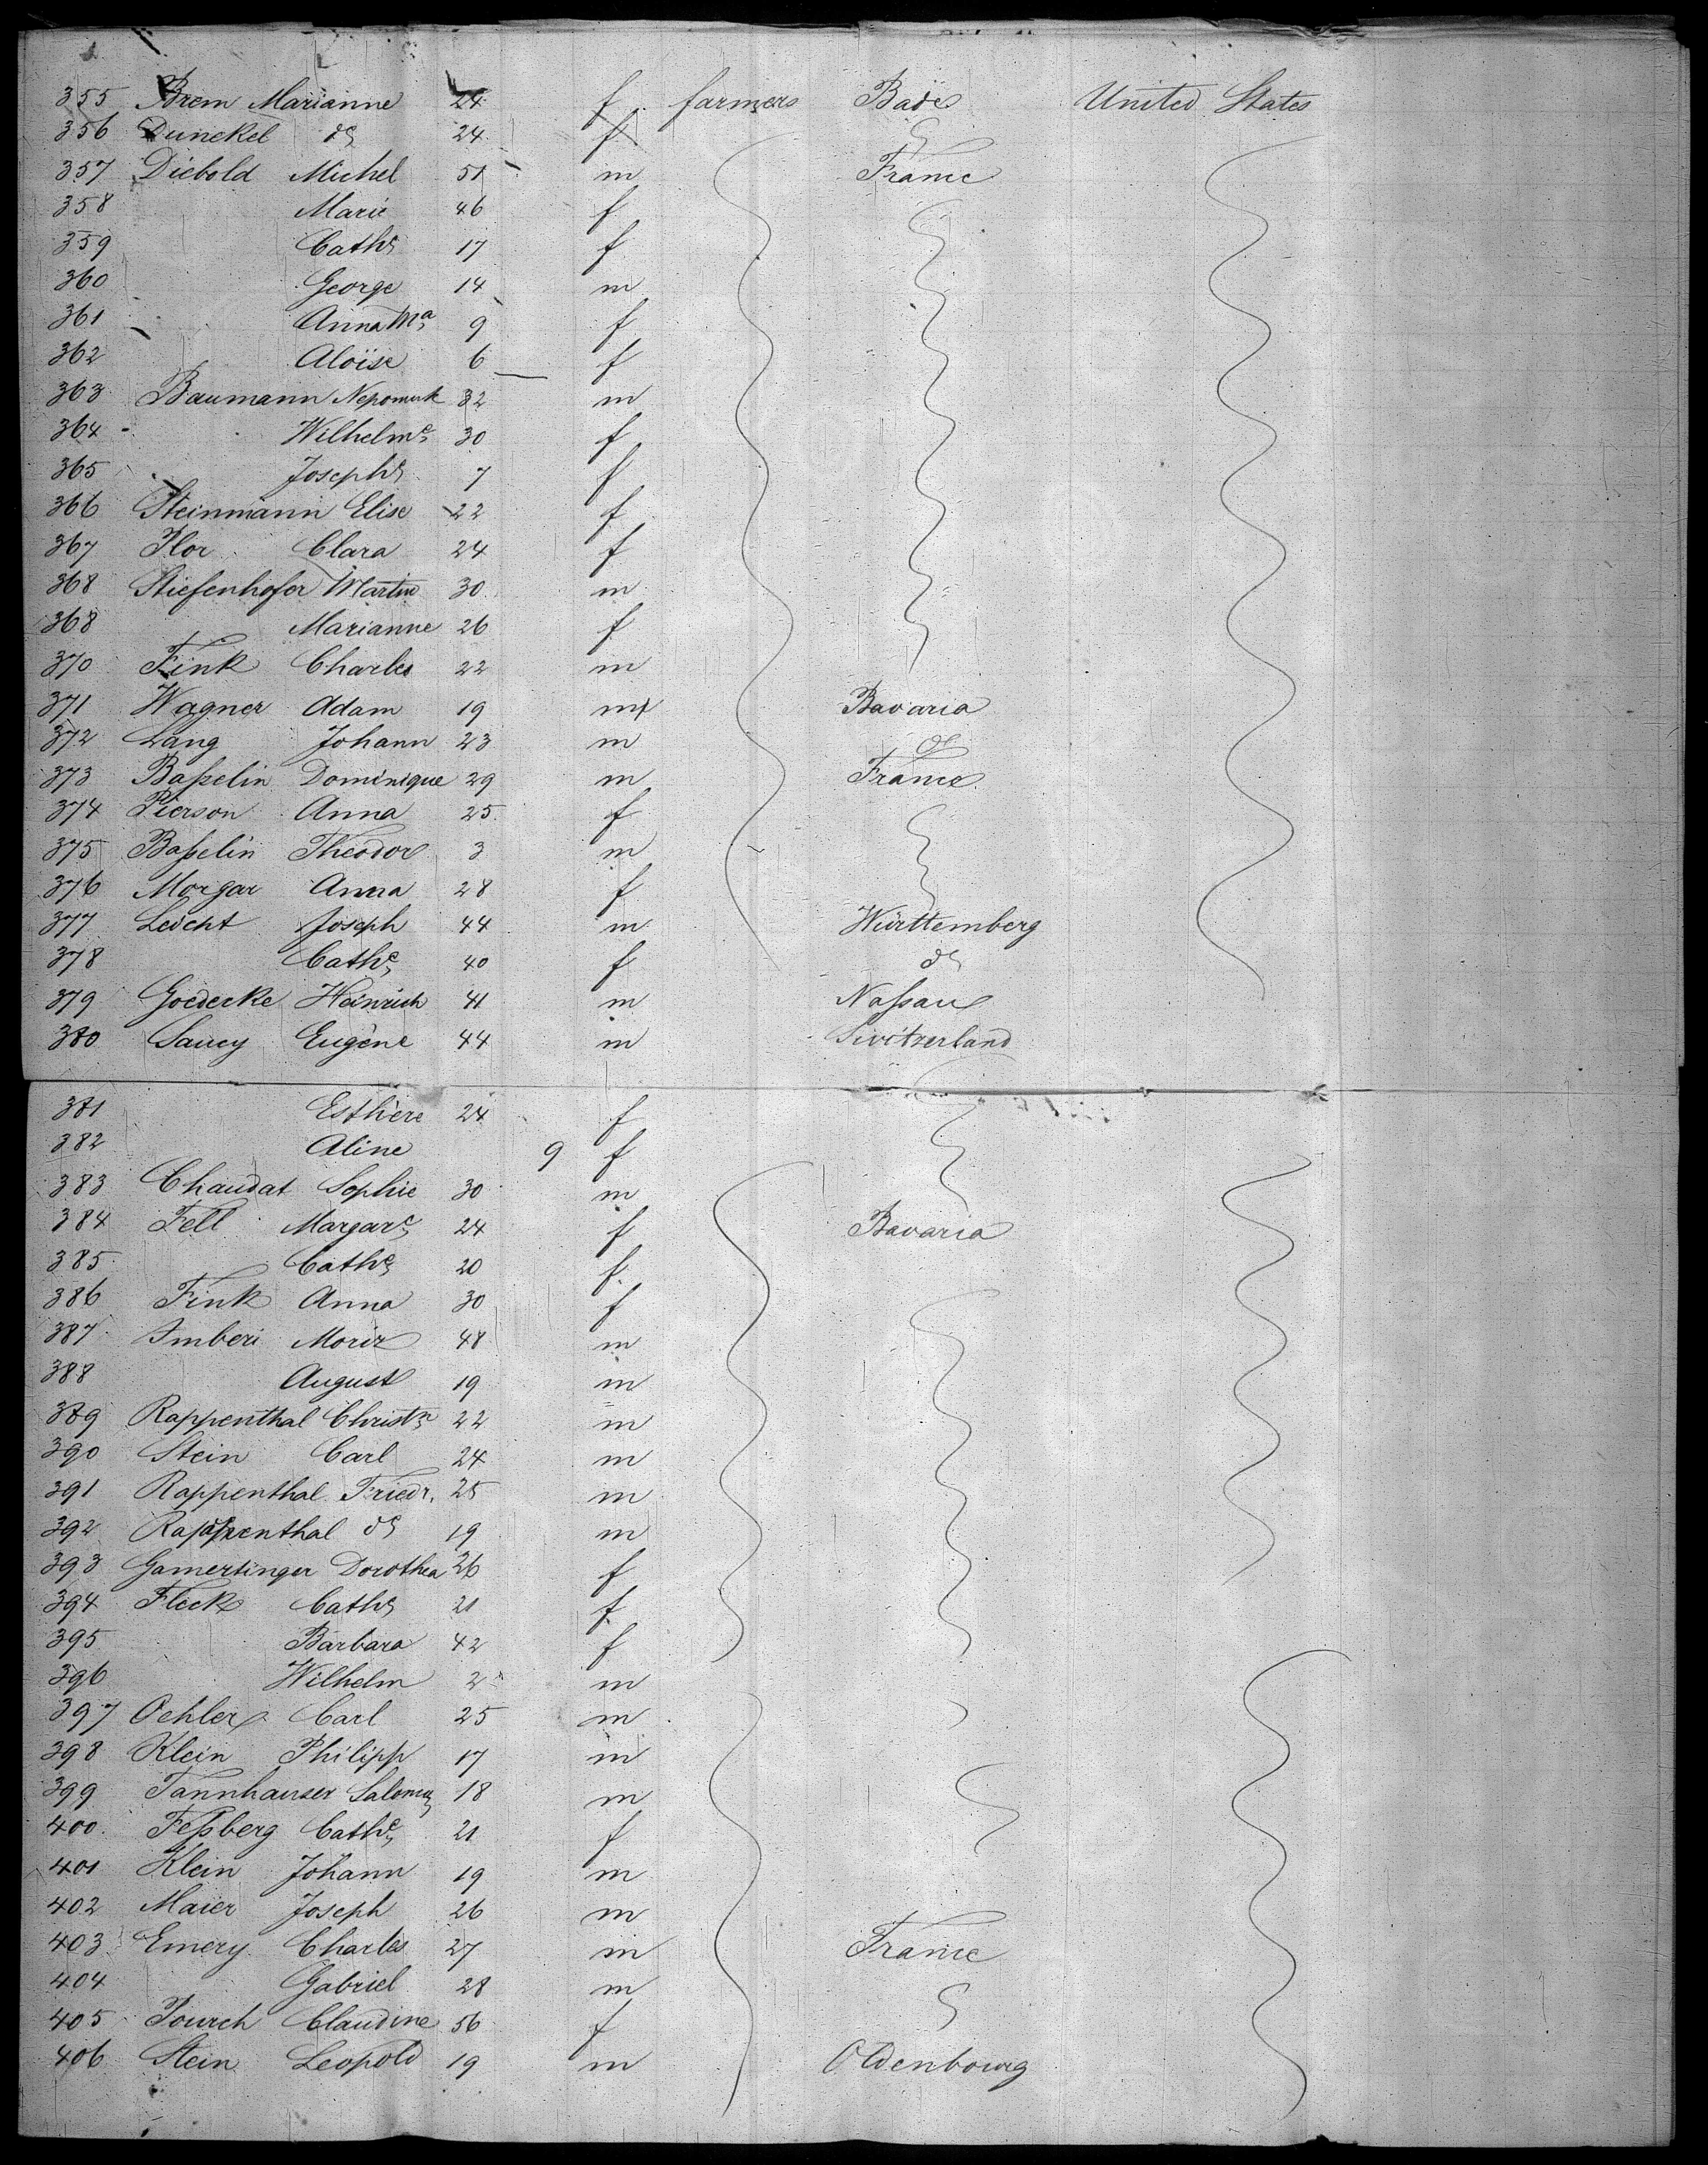 355 Brem Marianne 24 f farmers Bade United States
356 Dunckel do 24 f
357 Diebold Michel 51 m France
358 Marie 46 f
359 Cathe 17 f
360 George 14 m
361 Anna Ma 9 f
362 Aloïse 6 f
363 Baumann Nepomuk 32 m
364 Wilhelme 30 f
365 Josephe 7 f
366 Steinmann Elise 22 f
367 Flor Clara 24 f
368 Stiefenhofer Martin 30 m
368 Marianne 26 f
370 Fink Charles 22 m
371 Wagner Adam 19 m Bavaria
372 Lang Johann 23 m do
373 Baßelin Dominique 29 m France
374 Pierson Anna 25 f
375 Baßelin Theodor 3 m
376 Morgar Anna 28 f
377 Leicht Joseph 44 m Württemberg
378 Cathe 40 f do
379 Goedecke Heinrich 41 m Naßau
380 Saucy Eugène 44 m Switzerland
381 Esthère 24 f
382 Aline 9 f
383 Chaudat Sophie 30 m
384 Fell Margare 24 f Bavaria
385 Cathe 20 f
386 Fink Anna 30 f
387 Imberi Moriz 48 m
388 August 19 m
389 Rappenthal Christn 22 m
390 Stein Carl 24 m
391 Rappenthal Friedr. 25 m
392 Rappenthal do 19 m
393 Gamertinger Dorothea 26 f
394 Fleck Cathe 21 f
395 Barbara 42 f
396 Wilhelm 2 m
397 Oehler Carl 25 m
398 Klein Philipp 17 m
399 Tannhauser 18 m
400 Feßberg Cathe 21 f
401 Klein Johann 19 m
402 Maier Joseph 26 m
403 Emery Charles 27 m France
404 Gabriel 28 m
405 Pourch Claudine 56 f
406 Stein Leopold 19 m Oldenbourg